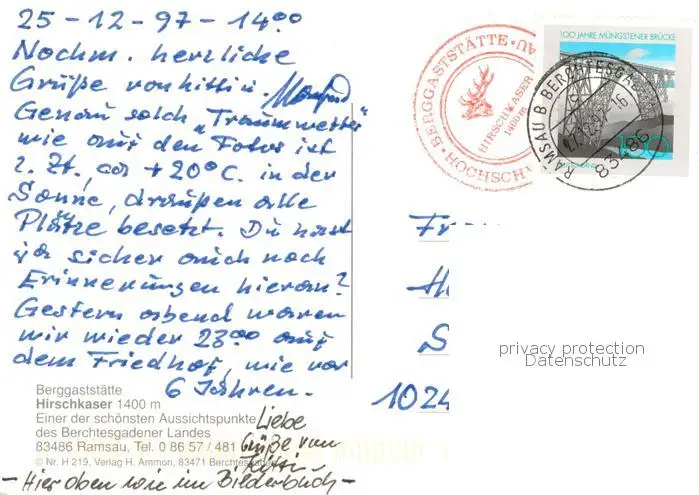 25-12-97-14⁰⁰
Nochm. herzliche
Grüße von Kitti u. Manfred
Genau solch "Traumwetter"
wie auf den Fotos ist
z. Zt., ca +20°C. in der
Sonne, draußen alle
Plätze besetzt. Du hast
ja sicher auch noch
Erinnerungen hieran?
Gestern abend waren
wir wieder 23⁰⁰ auf
dem Friedhof, wie vor
6 Jahren.
Berggaststätte
Hirschkaser 1400 m
Einer der schönsten Aussichtspunkte
des Berchtesgadener Landes
83486 Ramsau, Tel. 0 86 57 / 481
© Nr. H 219, Verlag H. Ammon, 83471 Berchtesgaden
Liebe
Grüße von
Kitti
- Hier oben wie im Bilderbuch -
BERGGASTSTÄTTE
HIRSCHKASER
1400 m
HOCHSCHW
100 JAHRE MÜNGSTENER BRÜCKE
RAMSAU B BERCHTESGADEN
83486
100
Fr
H
S
1024
privacy protection
Datenschutz